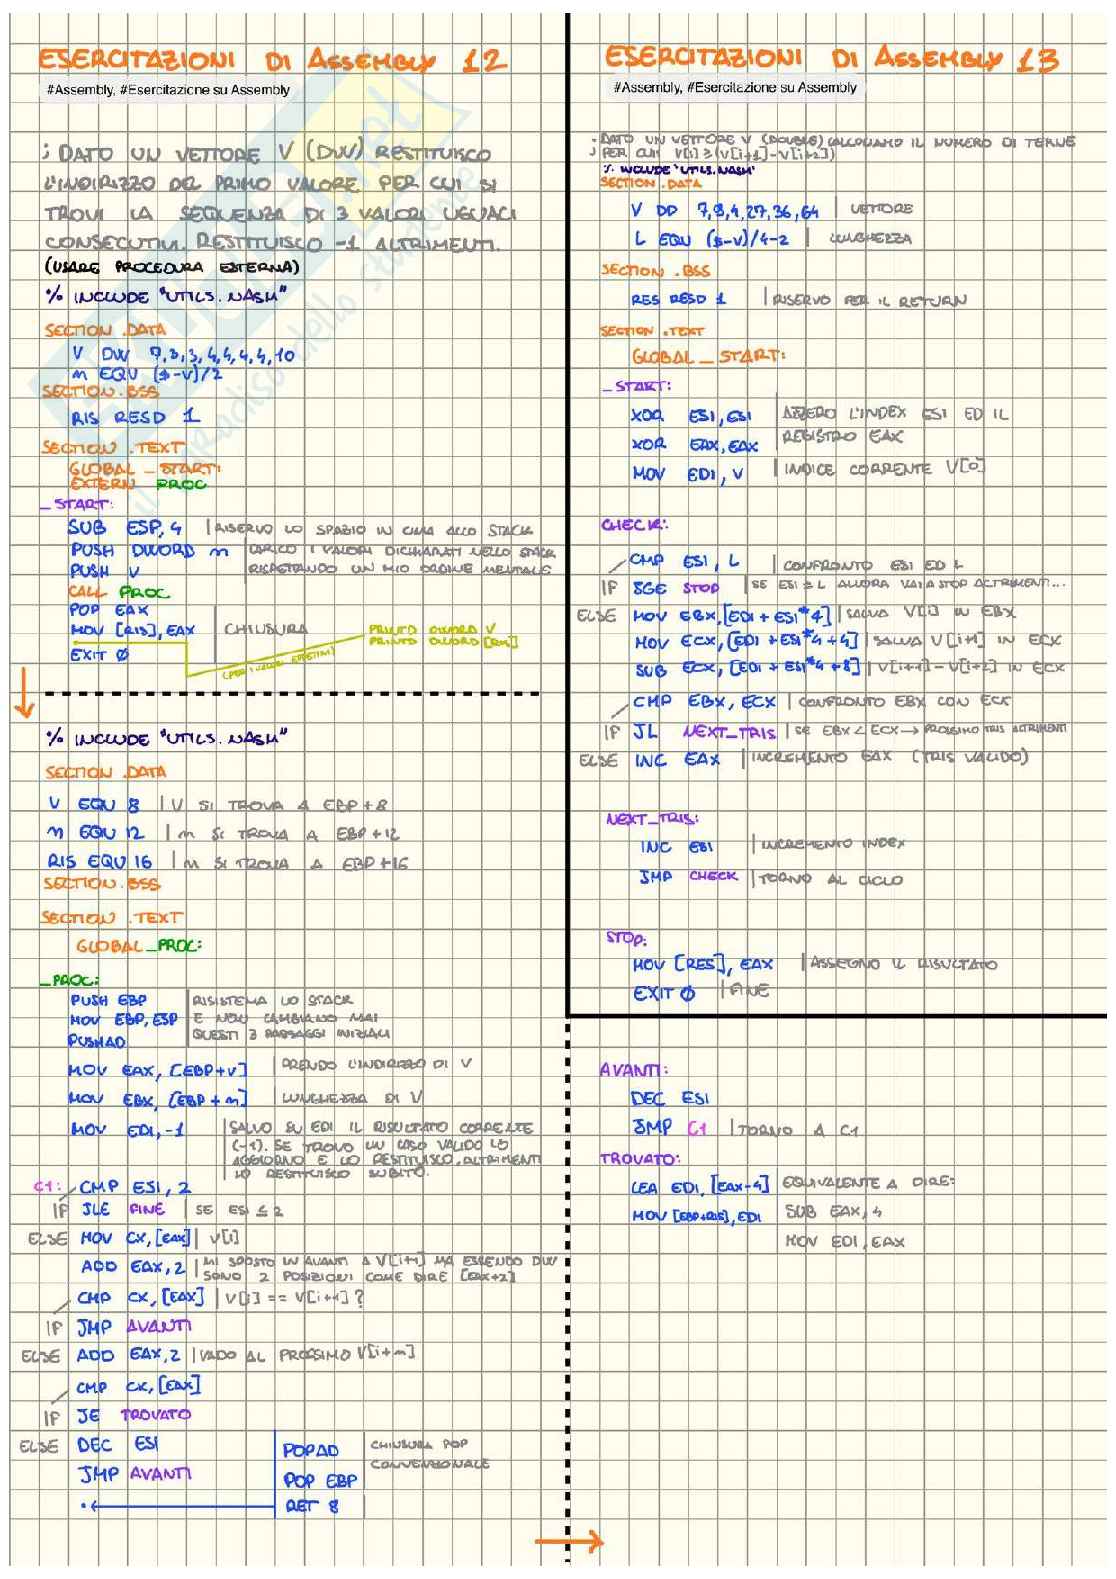 ESERCITAZIONI DI ASSEMBLY 12
#Assembly, #Esercitazione su Assembly
; DATO UN VETTORE V (DW) RESTITUISCO
L'INDIRIZZO DEL PRIMO VALORE PER CUI SI
TROVI LA SEQUENZA DI 3 VALORI UGUALI
CONSECUTIVI. RESTITUISCO -1 ALTRIMENTI.
(USARE PROCEDURA ESTERNA)
% INCLUDE "UTILS.NASM"
SECTION .DATA
V DW 7,3,3,4,4,4,4,10
m EQU ($-V)/2
SECTION .BSS
RIS RESD 1
SECTION .TEXT
GLOBAL _START:
EXTERN PROC
_START:
SUB ESP, 4 | RISERVO LO SPAZIO IN CIMA ALLO STACK
PUSH DWORD m | CARICO I VALORI DICHIARATI NELLO STACK
PUSH V | RISPETTANDO UN MIO ORDINE MENTALE
CALL PROC
POP EAX
MOV [RIS], EAX | CHIUSURA
PRINTD DWORD V
PRINTD DWORD [RIS]
EXIT 0
(PER I VALORI EFFETTIVI)
% INCLUDE "UTILS.NASM"
SECTION .DATA
V EQU 8 | V SI TROVA A EBP+8
m EQU 12 | m SI TROVA A EBP+12
RIS EQU 16 | m SI TROVA A EBP+16
SECTION .BSS
SECTION .TEXT
GLOBAL _PROC:
_PROC:
PUSH EBP | RISISTEMA LO STACK
MOV EBP, ESP | E NON CAMBIANO MAI
PUSHAD | QUESTI 3 PASSAGGI INIZIALI
MOV EAX, [EBP+V] | PRENDO L'INDIRIZZO DI V
MOV EBX, [EBP+m] | LUNGHEZZA DI V
MOV EDI, -1 | SALVO SU EDI IL RISULTATO CORRENTE
(-1). SE TROVO UN CASO VALIDO LO
AGGIORNO E LO RESTITUISCO, ALTRIMENTI
LO RESTITUISCO SUBITO.
C1: CMP ESI, 2
IF JLE FINE | SE ESI ≤ 2
ELSE MOV CX, [EAX] | V[i]
ADD EAX, 2 | MI SPOSTO IN AVANTI A V[i+1] MA ESSENDO DW
SONO 2 POSIZIONI COME DIRE [EAX+2]
CMP CX, [EAX] | V[i] == V[i+1] ?
IF JMP AVANTI
ELSE ADD EAX, 2 | VADO AL PROSSIMO V[i+m]
CMP CX, [EAX]
IF JE TROVATO
ELSE DEC ESI
JMP AVANTI
POPAD | CHIUSURA POP
POP EBP | CONVENZIONALE
RET 8
ESERCITAZIONI DI ASSEMBLY 13
#Assembly, #Esercitazione su Assembly
; DATO UN VETTORE V (DOUBLE) CALCOLIAMO IL NUMERO DI TERNE
; PER CUI V[i] ≥ (V[i+1]-V[i+2])
% INCLUDE "UTILS.NASM"
SECTION .DATA
V DD 7,9,4,27,36,64 | VETTORE
L EQU ($-V)/4-2 | LUNGHEZZA
SECTION .BSS
RES RESD 1 | RISERVO PER IL RETURN
SECTION .TEXT
GLOBAL _START:
_START:
XOR ESI, ESI | AZZERO L'INDEX ESI ED IL
XOR EAX, EAX | REGISTRO EAX
MOV EDI, V | INDICE CORRENTE V[0]
CHECK:
CMP ESI, L | CONFRONTO ESI ED L
IF JGE STOP | SE ESI ≥ L ALLORA VAI A STOP ALTRIMENTI...
ELSE MOV EBX, [EDI + ESI*4] | SALVA V[i] IN EBX
MOV ECX, [EDI + ESI*4 + 4] | SALVA V[i+1] IN ECX
SUB ECX, [EDI + ESI*4 + 8] | V[i+1]-V[i+2] IN ECX
CMP EBX, ECX | CONFRONTO EBX CON ECX
IF JL NEXT_TRIS | SE EBX < ECX → PROSSIMO TRIS ALTRIMENTI
ELSE INC EAX | INCREMENTO EAX (TRIS VALIDO)
NEXT_TRIS:
INC ESI | INCREMENTO INDEX
JMP CHECK | TORNO AL CICLO
STOP:
MOV [RES], EAX | ASSEGNO IL RISULTATO
EXIT 0 | FINE
AVANTI:
DEC ESI
JMP C1 | TORNO A C1
TROVATO:
LEA EDI, [EAX-4] EQUIVALENTE A DIRE:
MOV [EBP+RIS], EDI SUB EAX, 4
MOV EDI, EAX